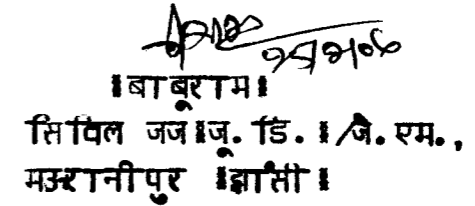 ।बाबूराम।
सिविल जज ।जू. डि. । /जे. एम.,
मऊरानीपुर ।झांसी ।